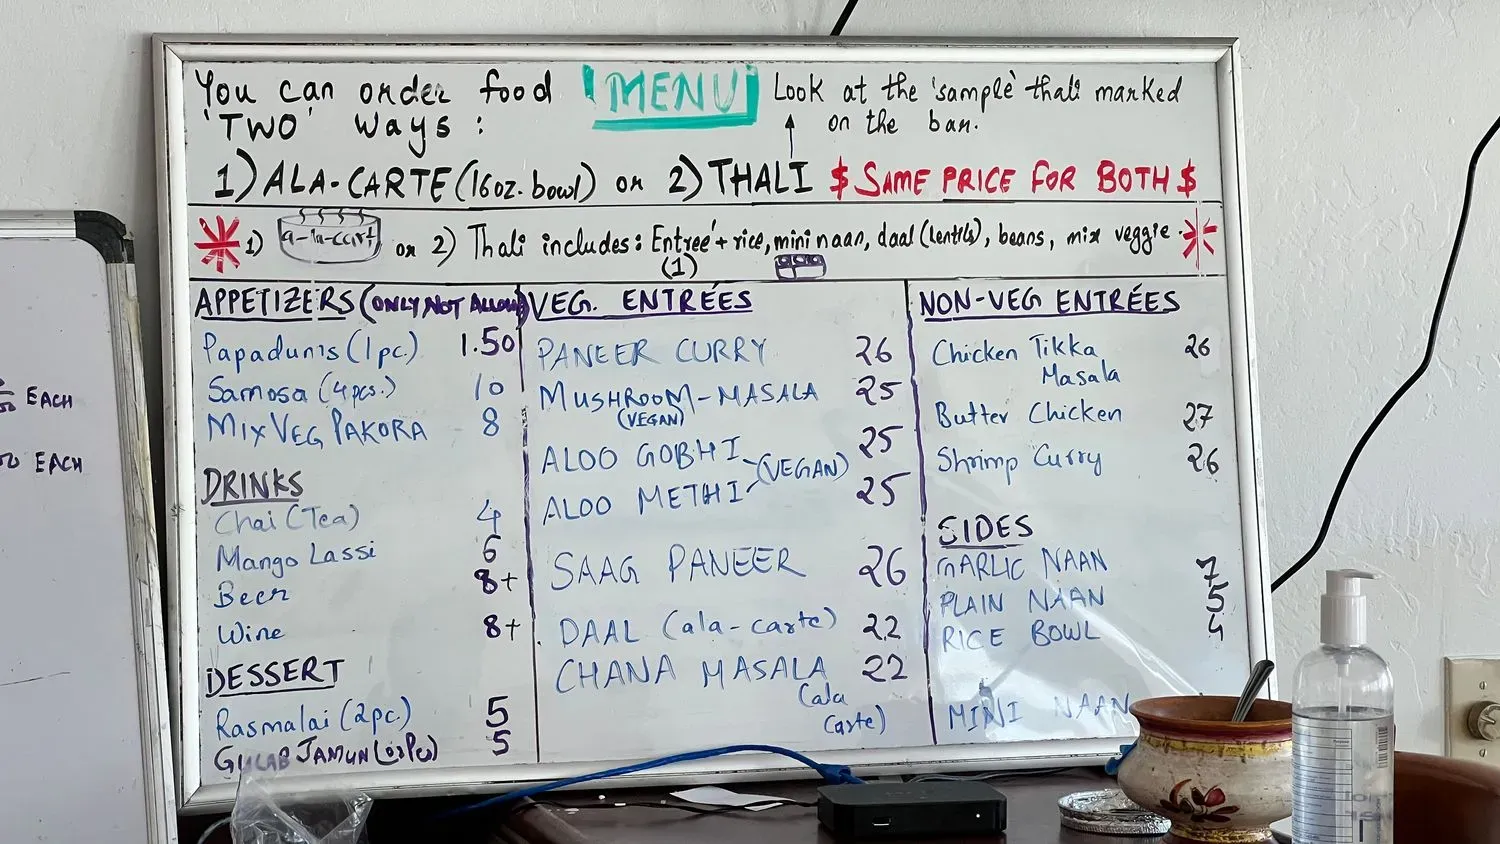 You can order food
'TWO' ways :
MENU
Look at the 'sample' thali marked
on the bar.
1) ALA-CARTE (16oz. bowl) or 2) THALI $ SAME PRICE FOR BOTH $
1) a-la-cart or 2) Thali includes: Entreé + rice, mini naan, daal (lentils), beans, mix veggie.
(1)
APPETIZERS (ONLY NOT ALLOW)
Papadums (1pc.) 1.50
Samosa (4pcs.) 10
MIX VEG PAKORA 8
DRINKS
Chai (Tea) 4
Mango Lassi 6
Beer 8+
Wine 8+
DESSERT
Rasmalai (2pc.) 5
GULAB JAMUN 5
VEG. ENTRÉES
PANEER CURRY 26
MUSHROOM-MASALA 25
(VEGAN)
ALOO GOBHI 25
(VEGAN)
ALOO METHI 25
SAAG PANEER 26
DAAL (ala-carte) 22
CHANA MASALA 22
(ala
carte)
NON-VEG ENTRÉES
Chicken Tikka 26
Masala
Butter Chicken 27
Shrimp Curry 26
SIDES
GARLIC NAAN 7
PLAIN NAAN 5
RICE BOWL 4
MINI NAAN
EACH
EACH